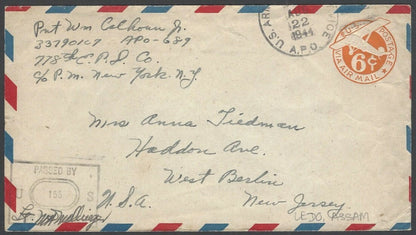 Pvt Wm Calhoun Jr.
33790167 APO-689
778th C.P.S. Co.
c/o P.M. New York. N.Y.
U.S. ARMY
22
1944
A.P.O.
U.S. POSTAGE
6¢
VIA AIR MAIL
Mrs Anna Tiedman
Haddon Ave.
West Berlin
New Jersey
U.S.A.
PASSED BY
U S
Lt.
LEDO, ASSAM